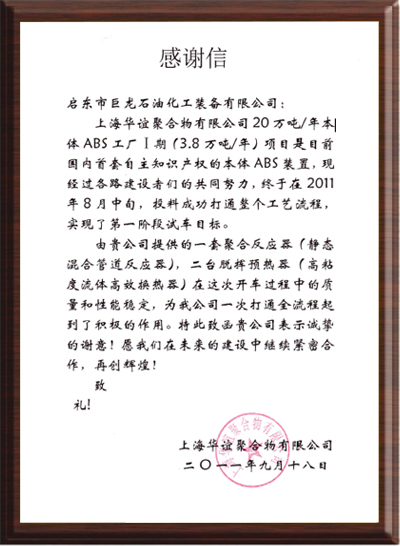 感谢信
启东市巨龙石油化工装备有限公司：
上海华谊聚合物有限公司20万吨/年本
体ABS工厂Ⅰ期（3.8万吨/年）项目是目前
国内首套自主知识产权的本体ABS装置，现
经过各路建设者们的共同努力，终于在2011
年8月中旬，投料成功打通整个工艺流程，
实现了第一阶段试车目标。
由贵公司提供的一套聚合反应器（静态
混合管道反应器），二台脱挥预热器（高粘
度流体高效换热器）在这次开车过程中的质
量和性能稳定，为我公司一次打通全流程起
到了积极的作用。特此致函贵公司表示诚挚
的谢意！愿我们在未来的建设中继续紧密合
作，再创辉煌！
致
礼！
上海华谊聚合物有限公司
二〇一一年九月十八日
上海华谊聚合物有限公司